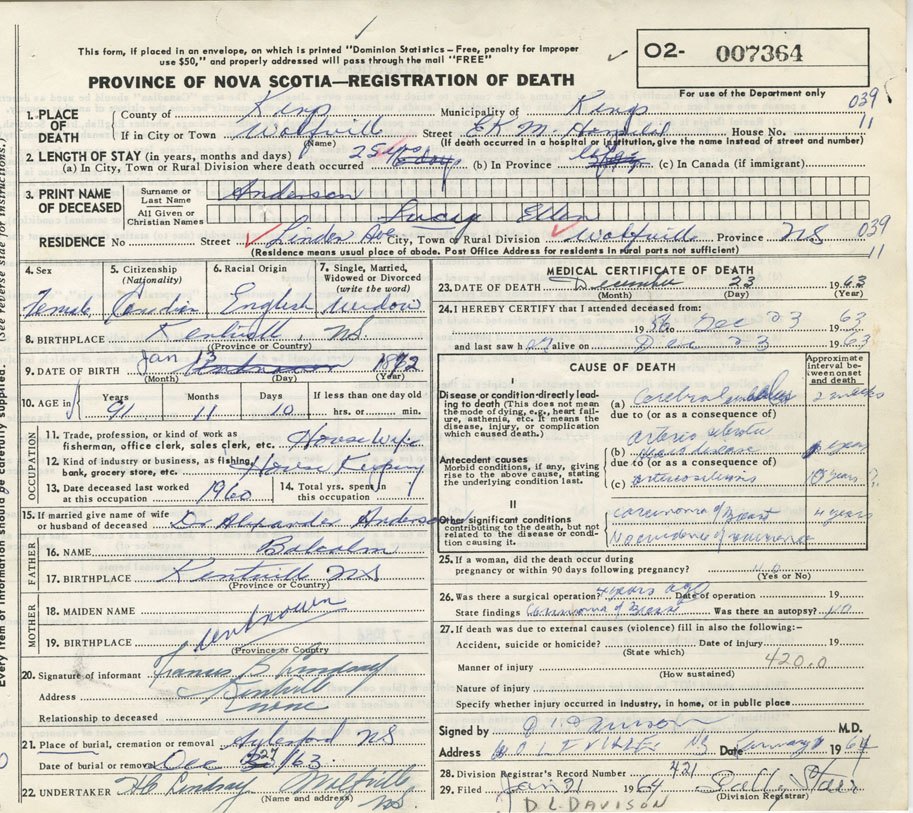 This form, if placed in an envelope, on which is printed "Dominion Statistics - Free, penalty for improper
use $50," and properly addressed will pass through the mail "FREE"
PROVINCE OF NOVA SCOTIA—REGISTRATION OF DEATH
O2- 007364
For use of the Department only
039
11
1. PLACE OF DEATH
County of Kings Municipality of Kings
If in City or Town Wolfville Street E K M Hospital House No.
(Name) (If death occurred in a hospital or institution, give the name instead of street and number)
2. LENGTH OF STAY (in years, months and days)
(a) In City, Town or Rural Division where death occurred (b) In Province (c) In Canada (if immigrant)
3. PRINT NAME OF DECEASED
Surname or Last Name Anderson
All Given or Christian Names Lucy Ellen
RESIDENCE No Street Linden Ave City, Town or Rural Division Wolfville Province NS
(Residence means usual place of abode. Post Office Address for residents in rural parts not sufficient)
039
11
4. Sex Female
5. Citizenship (Nationality) Canadian
6. Racial Origin English
7. Single, Married, Widowed or Divorced (write the word) Widow
8. BIRTHPLACE Kentville, NS
(Province or Country)
9. DATE OF BIRTH Jan 13 1872
(Month) (Day) (Year)
10. AGE in Years 91 Months 11 Days 10 If less than one day old hrs. or min.
OCCUPATION
11. Trade, profession, or kind of work as fisherman, office clerk, sales clerk, etc. Housewife
12. Kind of industry or business, as fishing, bank, grocery store, etc. House Keeping
13. Date deceased last worked at this occupation 1960
14. Total yrs. spent in this occupation
15. If married give name of wife or husband of deceased Dr. Alexander Anderson
FATHER
16. NAME Balcolm
17. BIRTHPLACE Kentville NS
(Province or Country)
MOTHER
18. MAIDEN NAME
19. BIRTHPLACE unknown
(Province or Country)
20. Signature of informant Francis B Lindsay
Address Kentville
Relationship to deceased none
21. Place of burial, cremation or removal Aylesford NS
Date of burial or removal Dec 27/63
22. UNDERTAKER Lindsay Wolfville NS.
(Name and address)
MEDICAL CERTIFICATE OF DEATH
23. DATE OF DEATH December 23 1963
(Month) (Day) (Year)
24. I HEREBY CERTIFY that I attended deceased from:
1956 to Dec 23 1963
and last saw her alive on Dec 23 1963
CAUSE OF DEATH
Approximate interval between onset and death
I
Disease or condition directly leading to death (This does not mean the mode of dying, e.g., heart failure, asthenia, etc. It means the disease, injury, or complication which caused death.)
(a) Cerebral embolus 2 weeks
due to (or as a consequence of)
Antecedent causes
Morbid conditions, if any, giving rise to the above cause, stating the underlying condition last.
arterio sclerotic
(b) Heart disease years
due to (or as a consequence of)
(c) arteriosclerosis 10 years?
II
Other significant conditions contributing to the death, but not related to the disease or condition causing it.
Carcinoma of Breast 4 years
No evidence of recurrence
25. If a woman, did the death occur during
pregnancy or within 90 days following pregnancy? NO
(Yes or No)
26. Was there a surgical operation? 4 years ago Date of operation 19
State findings Carcinoma of Breast Was there an autopsy? NO
27. If death was due to external causes (violence) fill in also the following:-
Accident, suicide or homicide? Date of injury 19
(State which)
Manner of injury 420.0
(How sustained)
Nature of injury
Specify whether injury occurred in Industry, in home, or in public place
Signed by M.D.
Address WOLFVILLE NS Date January 1964
28. Division Registrar's Record Number 421
29. Filed Jan 21 1964
(Division Registrar)
D L DAVISON
(See reverse side for instructions.)
Every item of information should be carefully supplied.